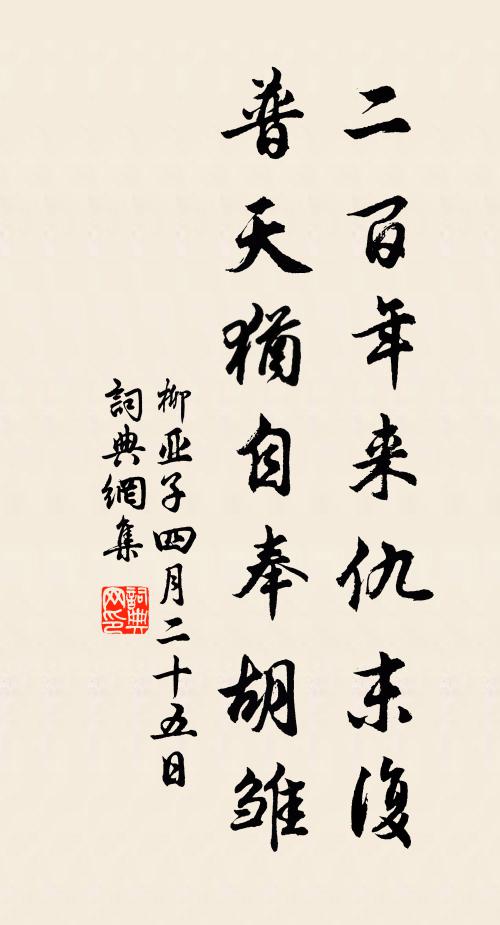 二百年来仇未復
普天猶自奉胡雏
柳亚子四月二十五日
詞典網集
詞典网印